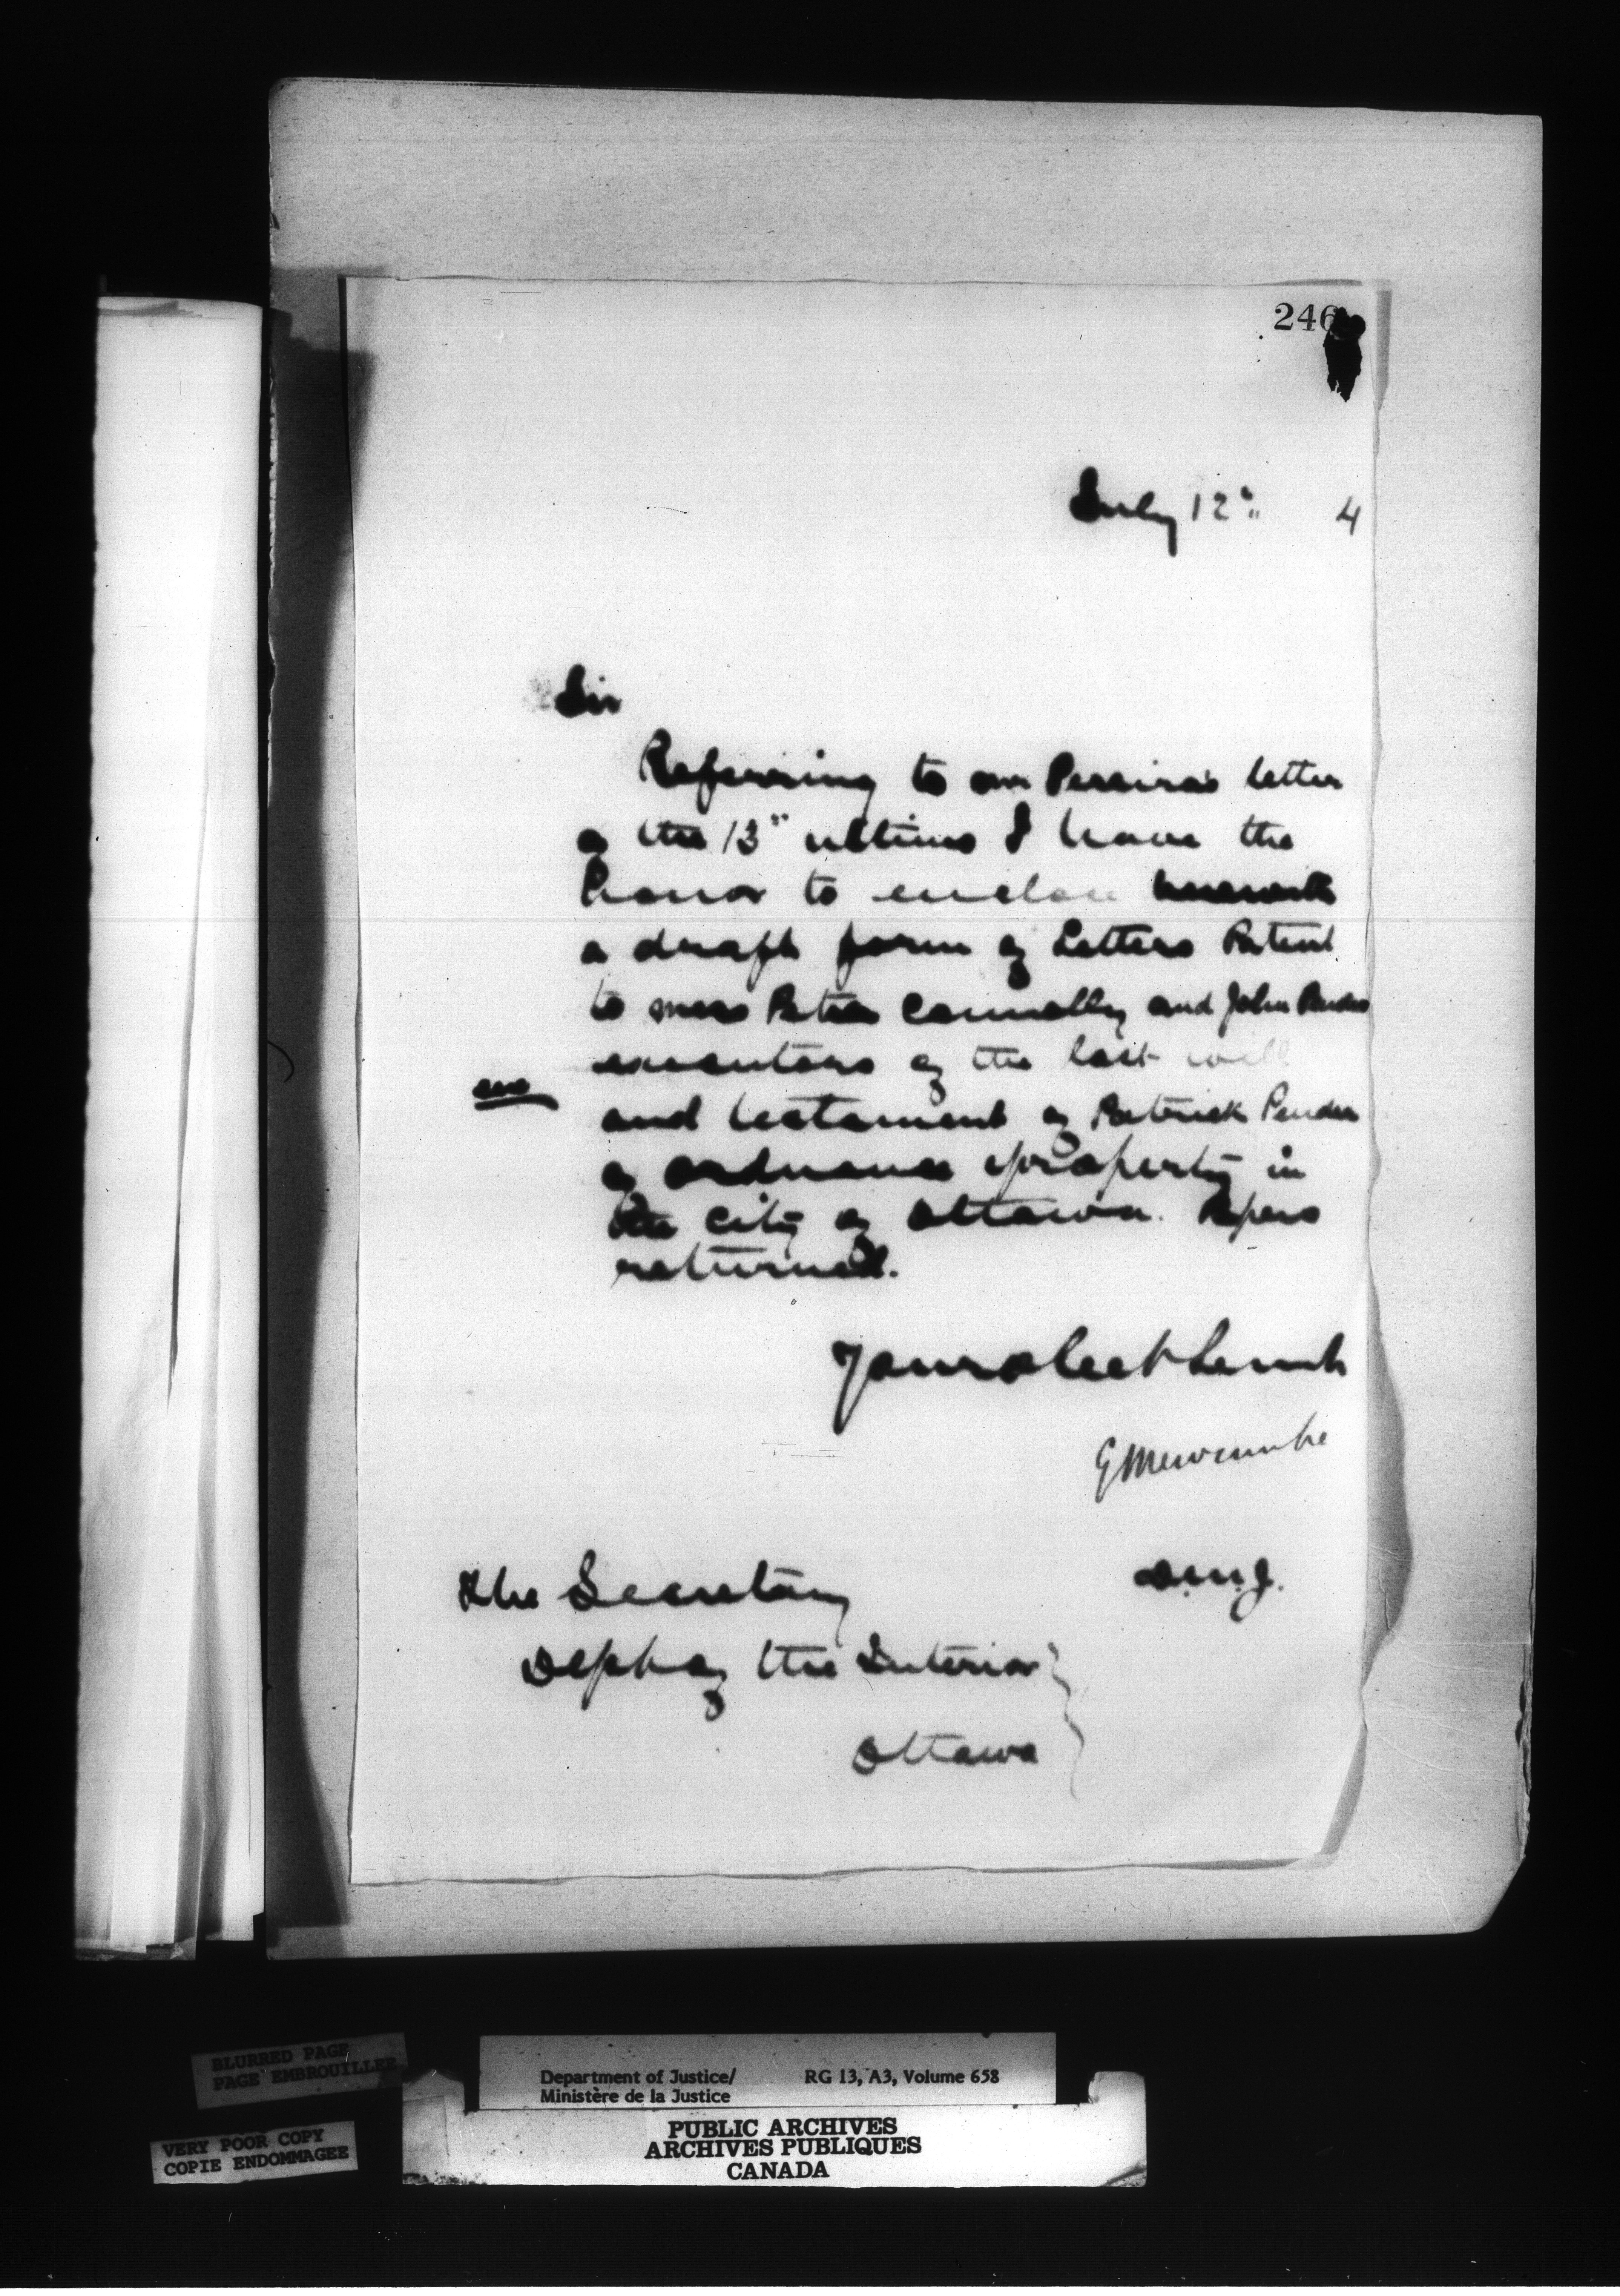 246
July 12" 4
Sir
Referring to Mr Pereira's letter
of the 13" ultimo I have the
honor to enclose herewith
a draft form of Letters Patent
to Mess Peter Connolly and John Pender
executors of the last will
enc
and testament of Patrick Pender
of ordnance property in
the city of Ottawa. Papers
returned.
Your obedt Servt
E Newcombe
D.M.J.
The Secretary
Dept of the Interior
Ottawa
BLURRED PAGE
PAGE EMBROUILLEE
VERY POOR COPY
COPIE ENDOMMAGEE
Department of Justice/ RG 13, A3, Volume 658
Ministère de la Justice
PUBLIC ARCHIVES
ARCHIVES PUBLIQUES
CANADA